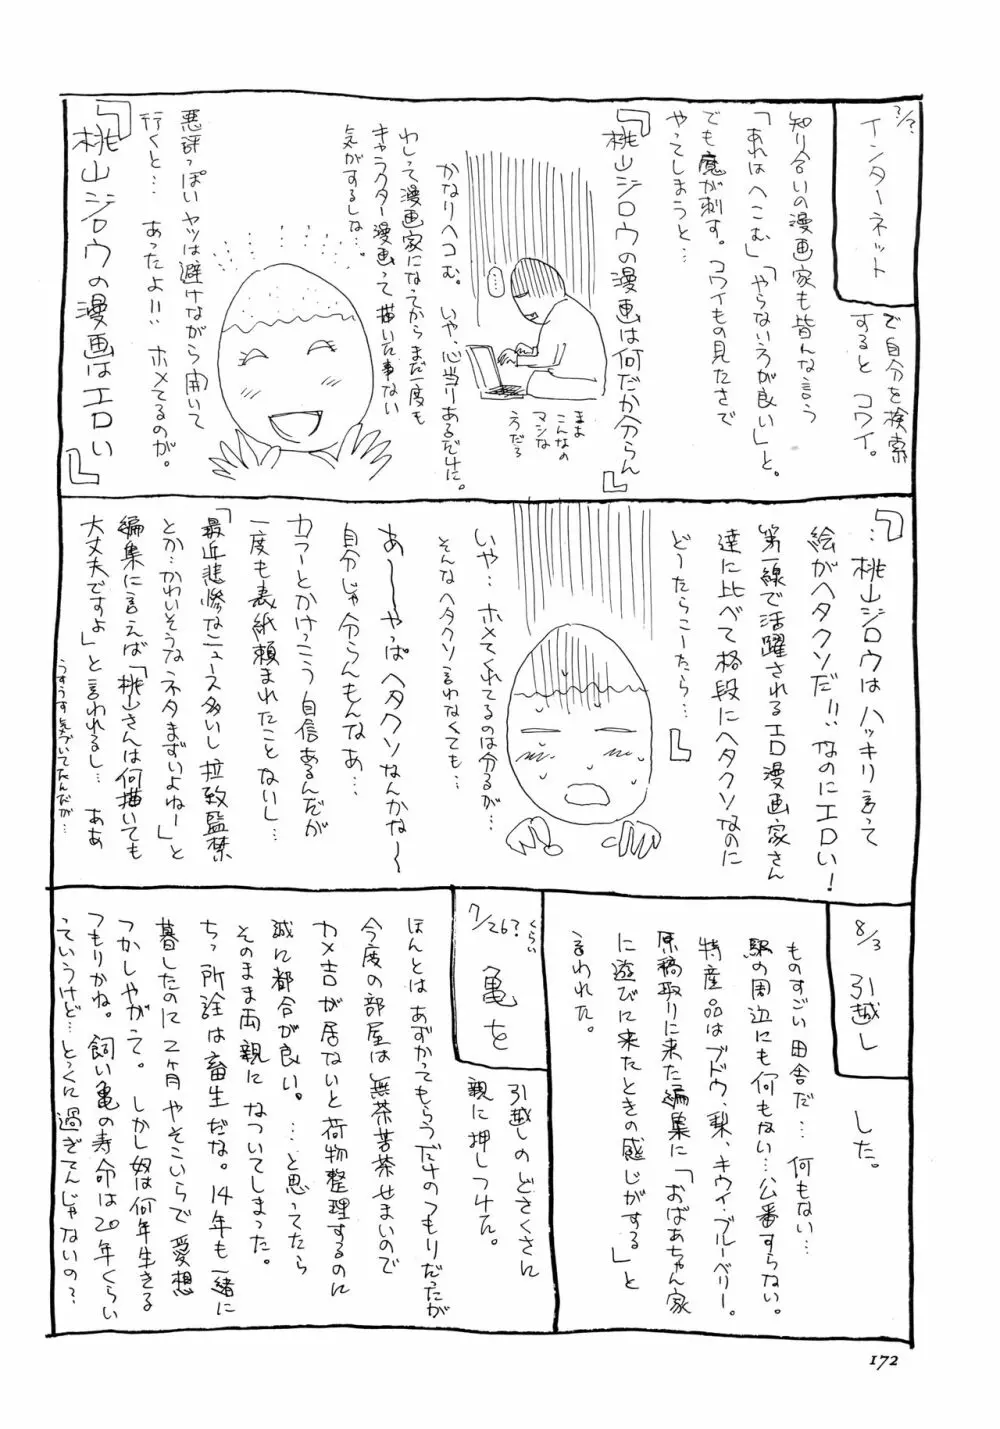 ?/?
インターネット
で自分を検索
すると コワイ。
知り合いの漫画家も皆んな言う
「あれはへこむ」「やらないうが良い」と。
でも魔が刺す。コワイもの見たさで
やってしまうと…
『桃山ジロウの漫画は何だか分らん』
…
まぁ
こんなの
マシな
うだろ
かなりヘコむ。いや、心当りあるだけに。
わしって漫画家になってからまだ一度も
キャラクター漫画って描いた事ない
気がするしな…
悪評っぽいヤツは避けながら開いて
行くと… あったよ!! ホメてるのが。
『桃山ジロウの漫画はエロい』
『…桃山ジロウはハッキリ言って
絵がヘタクソだ!!なのにエロい!
第一線で活躍されるエロ漫画家さん
達に比べて格段にヘタクソなのに
どーたらこーたら…』
いや… ホメてくれてるのは分るが…
そんなヘタクソ言わなくても…
あ〜〜やっぱヘタクソなんかな〜
自分じゃ分らんもんなぁ…
カラーとかけっこう自信あるんだが
一度も表紙頼まれたことないし…
「最近悲惨なニュース多いし拉致監禁
とか…かわいそうなネタまずいよねー」と
編集に言えば「桃山さんは何描いても
大丈夫ですよ」と言われるし… ああ
うすうす気づいてたんだが…
8/3 引越し
した。
ものすごい田舎だ… 何もない…
駅の周辺にも何もない…公番すらない。
特産品はブドウ、梨、キウイ・ブルーベリー。
原稿取りに来た編集に「おばあちゃん家
に遊びに来たときの感じがする」と
言われた。
7/26?くらい
亀を
引越しのどさくさに
親に押しつけた。
ほんとは あずかってもらうだけのつもりだったが
今度の部屋は無茶苦茶せまいので
カメ吉が居ないと荷物整理するのに
誠に都合が良い。…と思ってたら
そのまま両親に なついてしまった。
ちっ所詮は畜生だな。14年も一緒に
暮したのに2ヶ月やそこいらで愛想
つかしやがって。しかし奴は何年生きる
つもりかね。飼い亀の寿命は20年くらい
ていうけど…とっくに過ぎてんじゃないの?
172